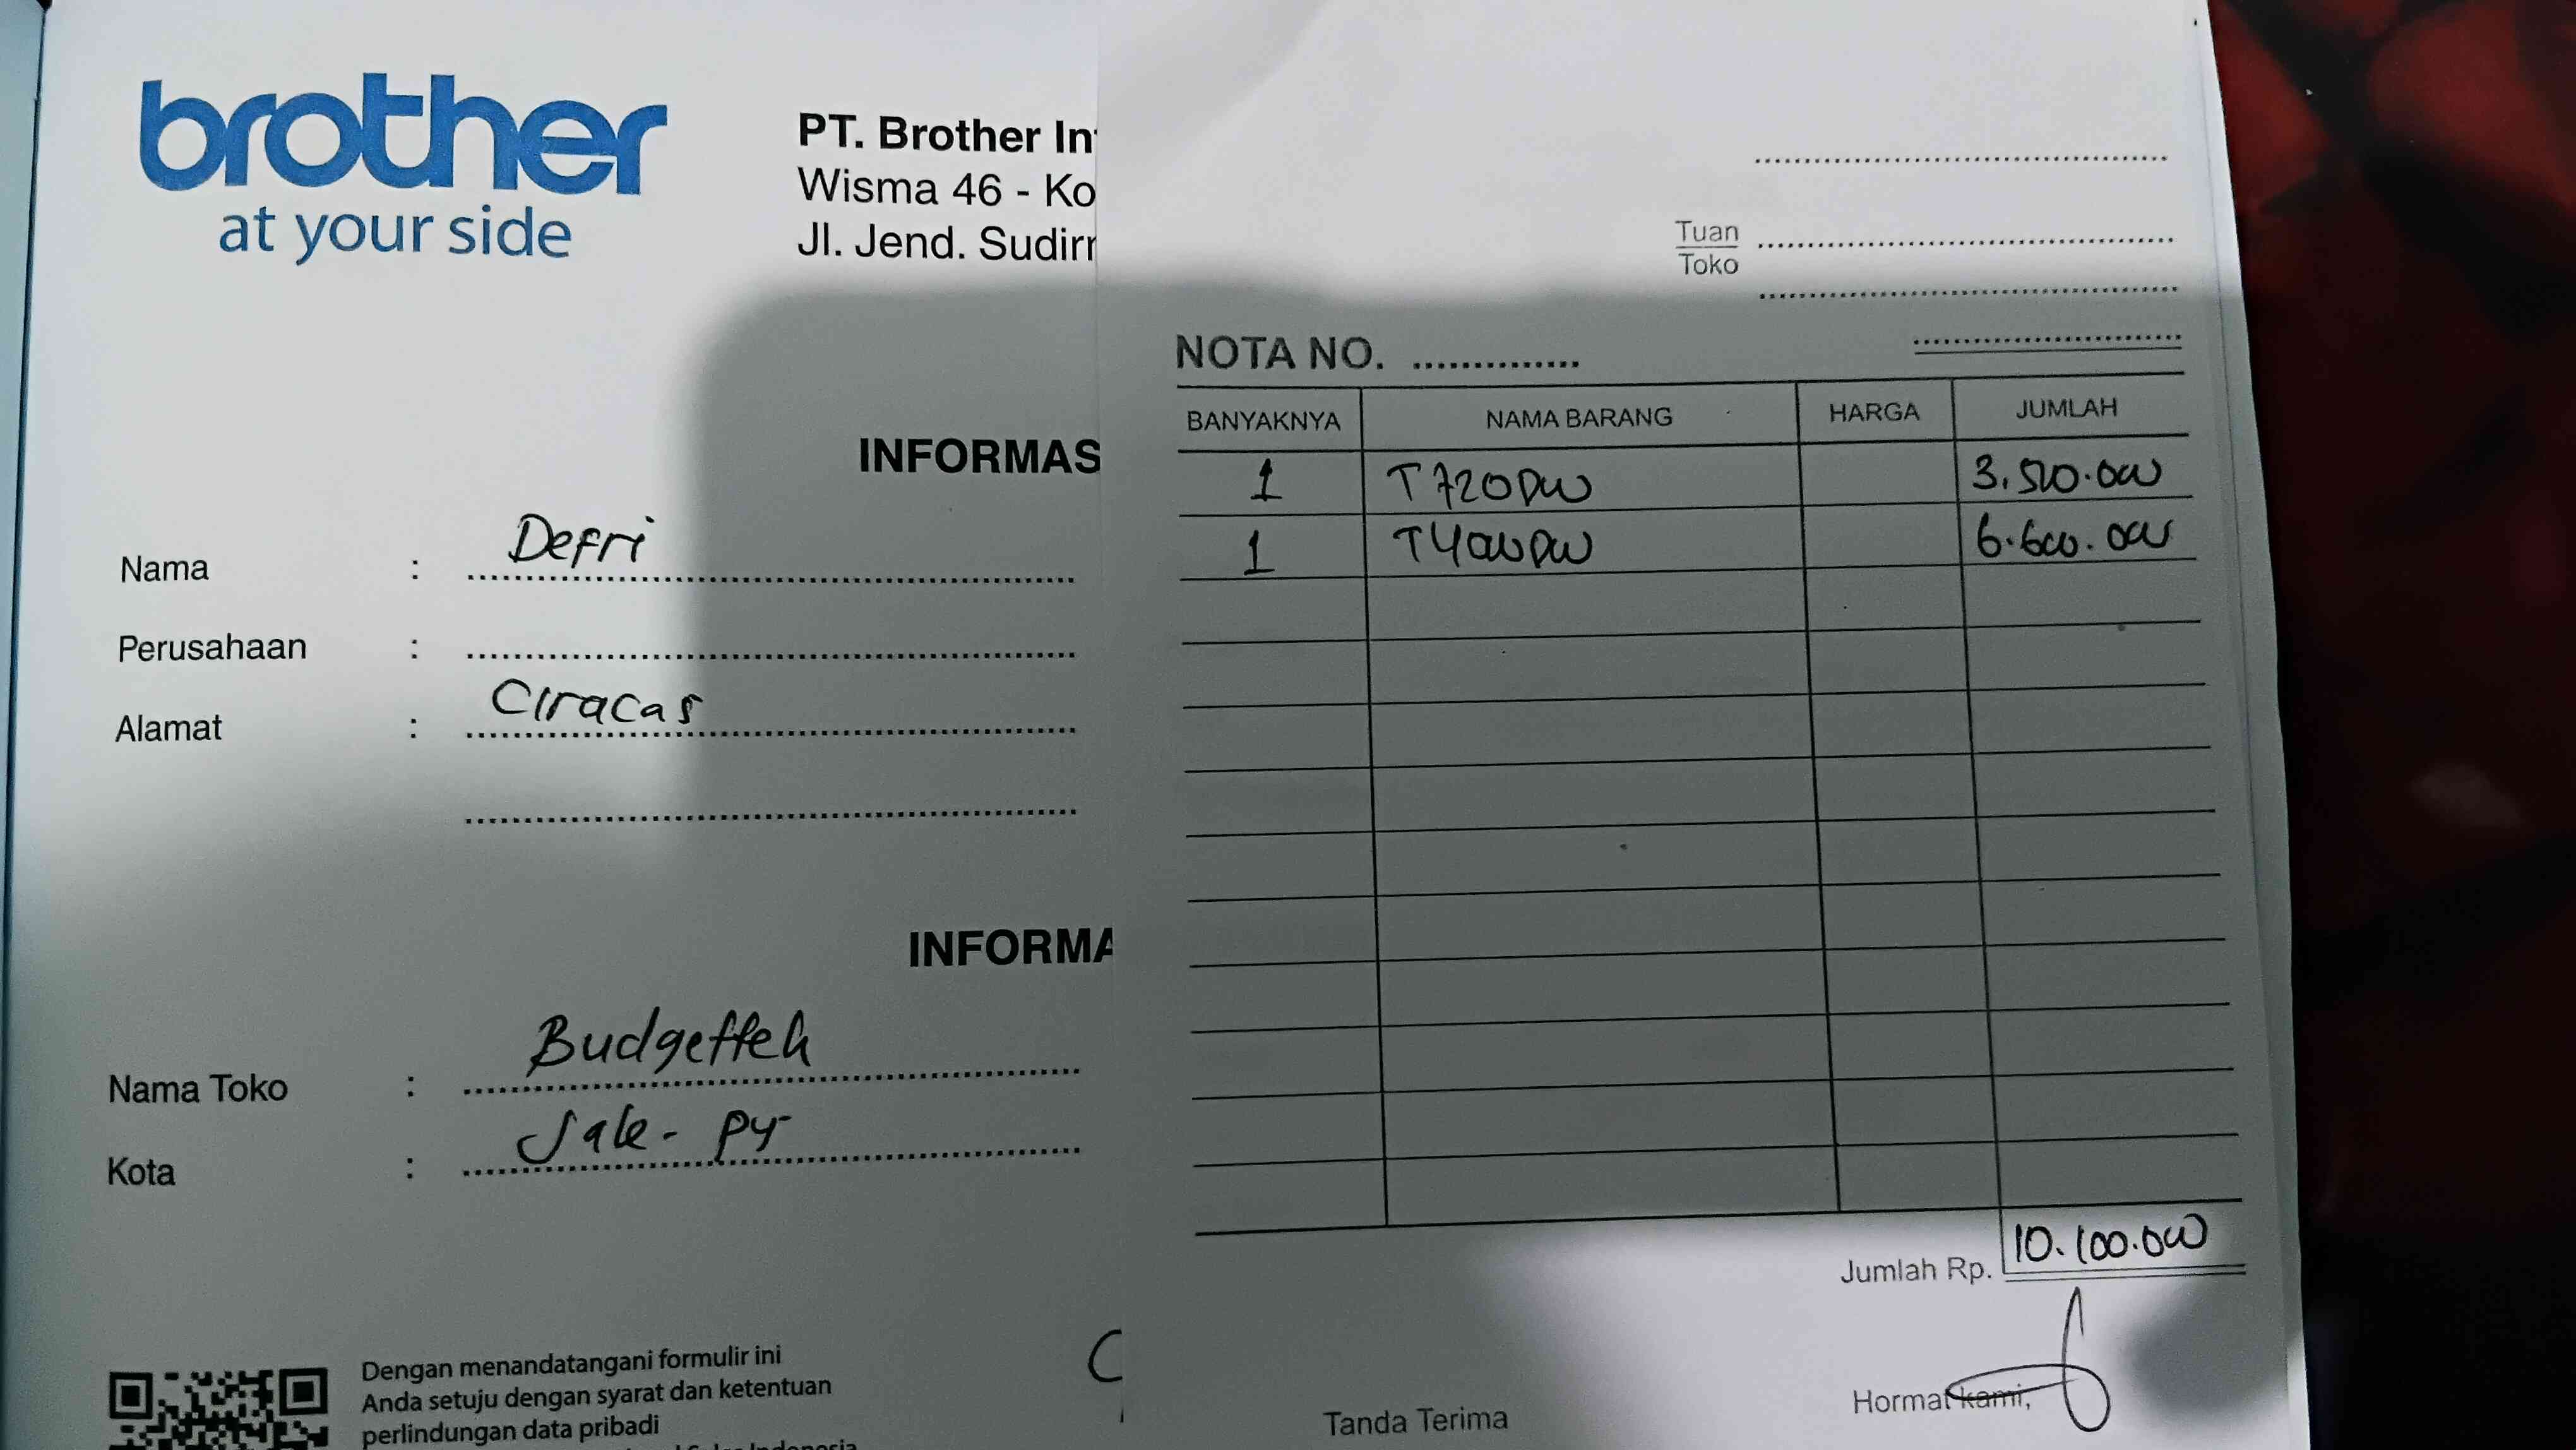 brother
at your side
PT. Brother In
Wisma 46 - Ko
Jl. Jend. Sudir
INFORMAS
Nama : Defri
Perusahaan :
Alamat : Ciracas
INFORMA
Nama Toko : Budgettech
Kota : Jak-py
Dengan menandatangani formulir ini
Anda setuju dengan syarat dan ketentuan
perlindungan data pribadi
Indonesia
Tuan
Toko
NOTA NO.
BANYAKNYA NAMA BARANG HARGA JUMLAH
1 T720DW 3.500.000
1 T4000DW 6.600.000
Jumlah Rp. 10.100.000
Tanda Terima Hormat kami,